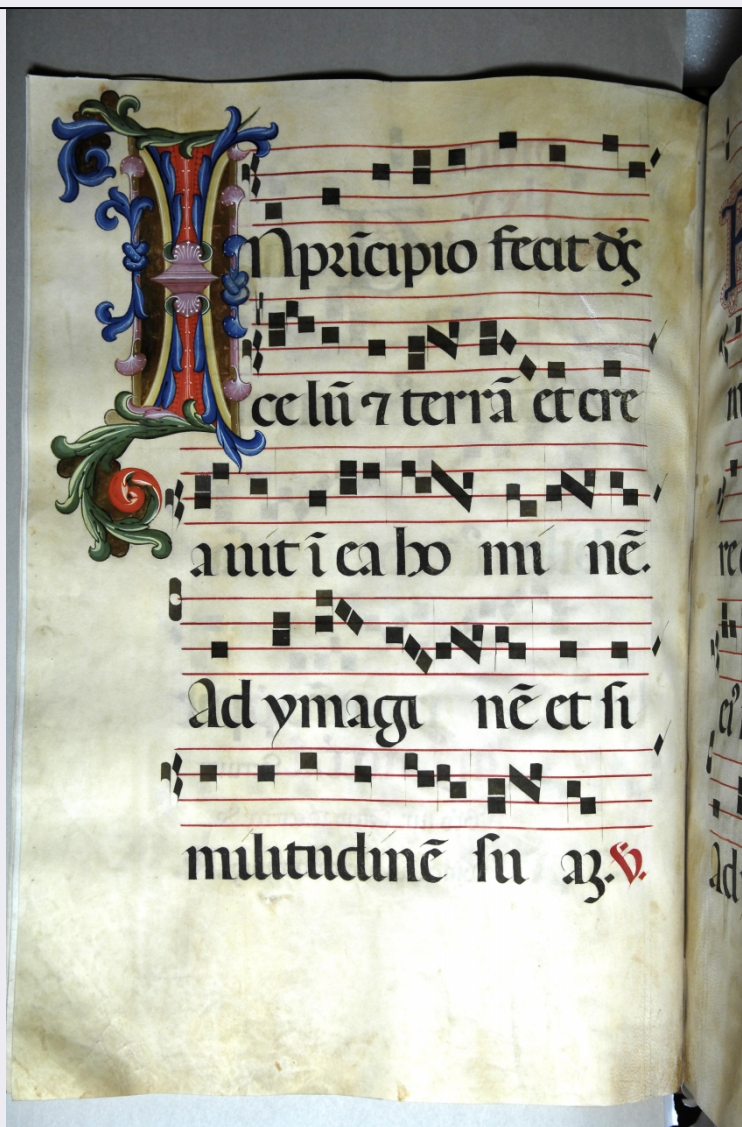 IN pri̅cipio fecit ds̅
celu̅ ⁊ terra̅ et cre
auit i̅ ea ho mi ne̅.
Ad ymagi ne̅ et si
militudine̅ su aꝫ. ℣.